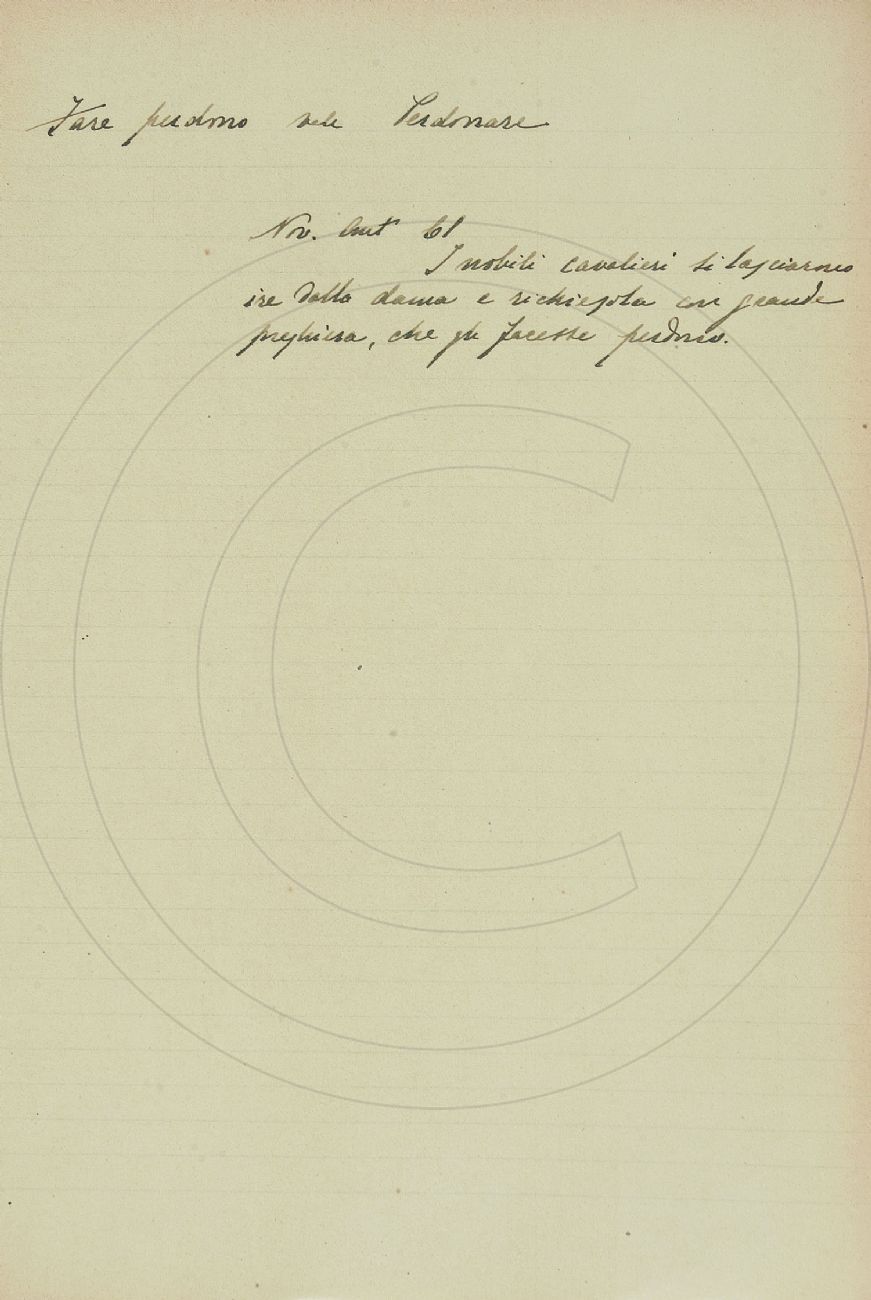 Fare perdono vale Perdonare
Nov. Ant 61
I nobili cavalieri si lasciarono
ire dalla dama e richiesola con grande
preghiera, che gli facesse perdono.